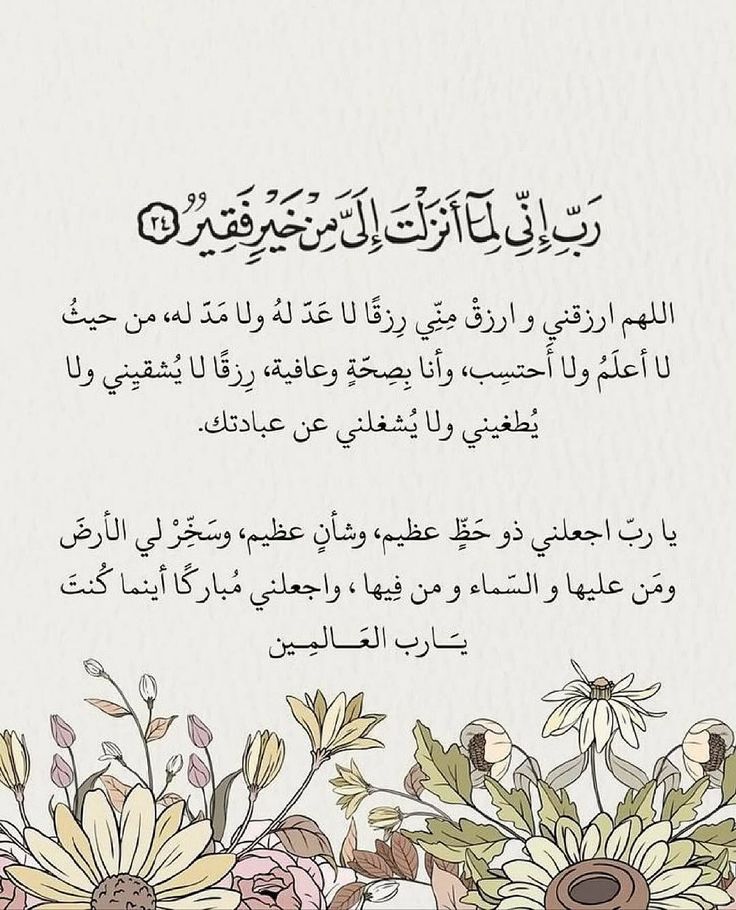 رَبِّ إِنِّي لِمَآ أَنزَلْتَ إِلَىَّ مِنْ خَيْرٍ فَقِيرٌ ٢٤
اللهم ارزقني و ارزقْ مِنِّي رِزقًا لا عَدّ لهُ ولا مَدّ له، من حيثُ
لا أعلَمُ ولا أَحتسِب، وأنا بِصِحّةٍ وعافية، رِزقًا لا يُشقيِني ولا
يُطغيني ولا يُشغلني عن عبادتك.
يا ربّ اجعلني ذو حَظٍّ عظيم، وشأنٍ عظيم، وسَخِّرْ لي الأرضَ
ومَن عليها و السّماء و من فِيها ، واجعلني مُباركًا أينما كُنتَ
يَــارب العَــــالمِــين